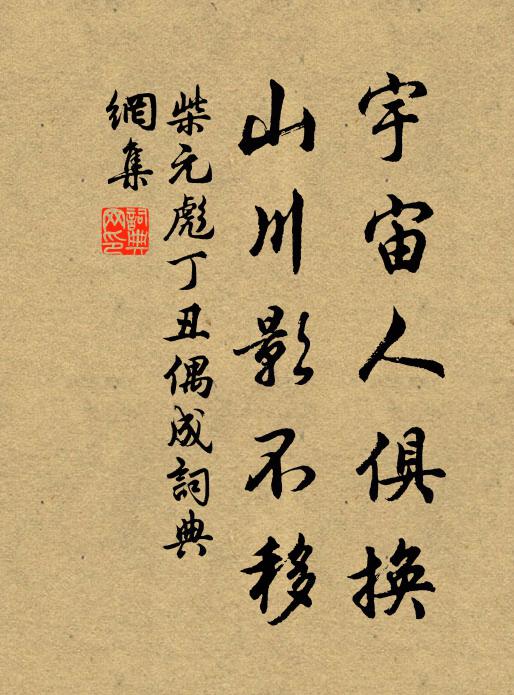 宇宙人俱換
山川影不移
柴元彪丁丑偶成詞典
網集
詞典
网印